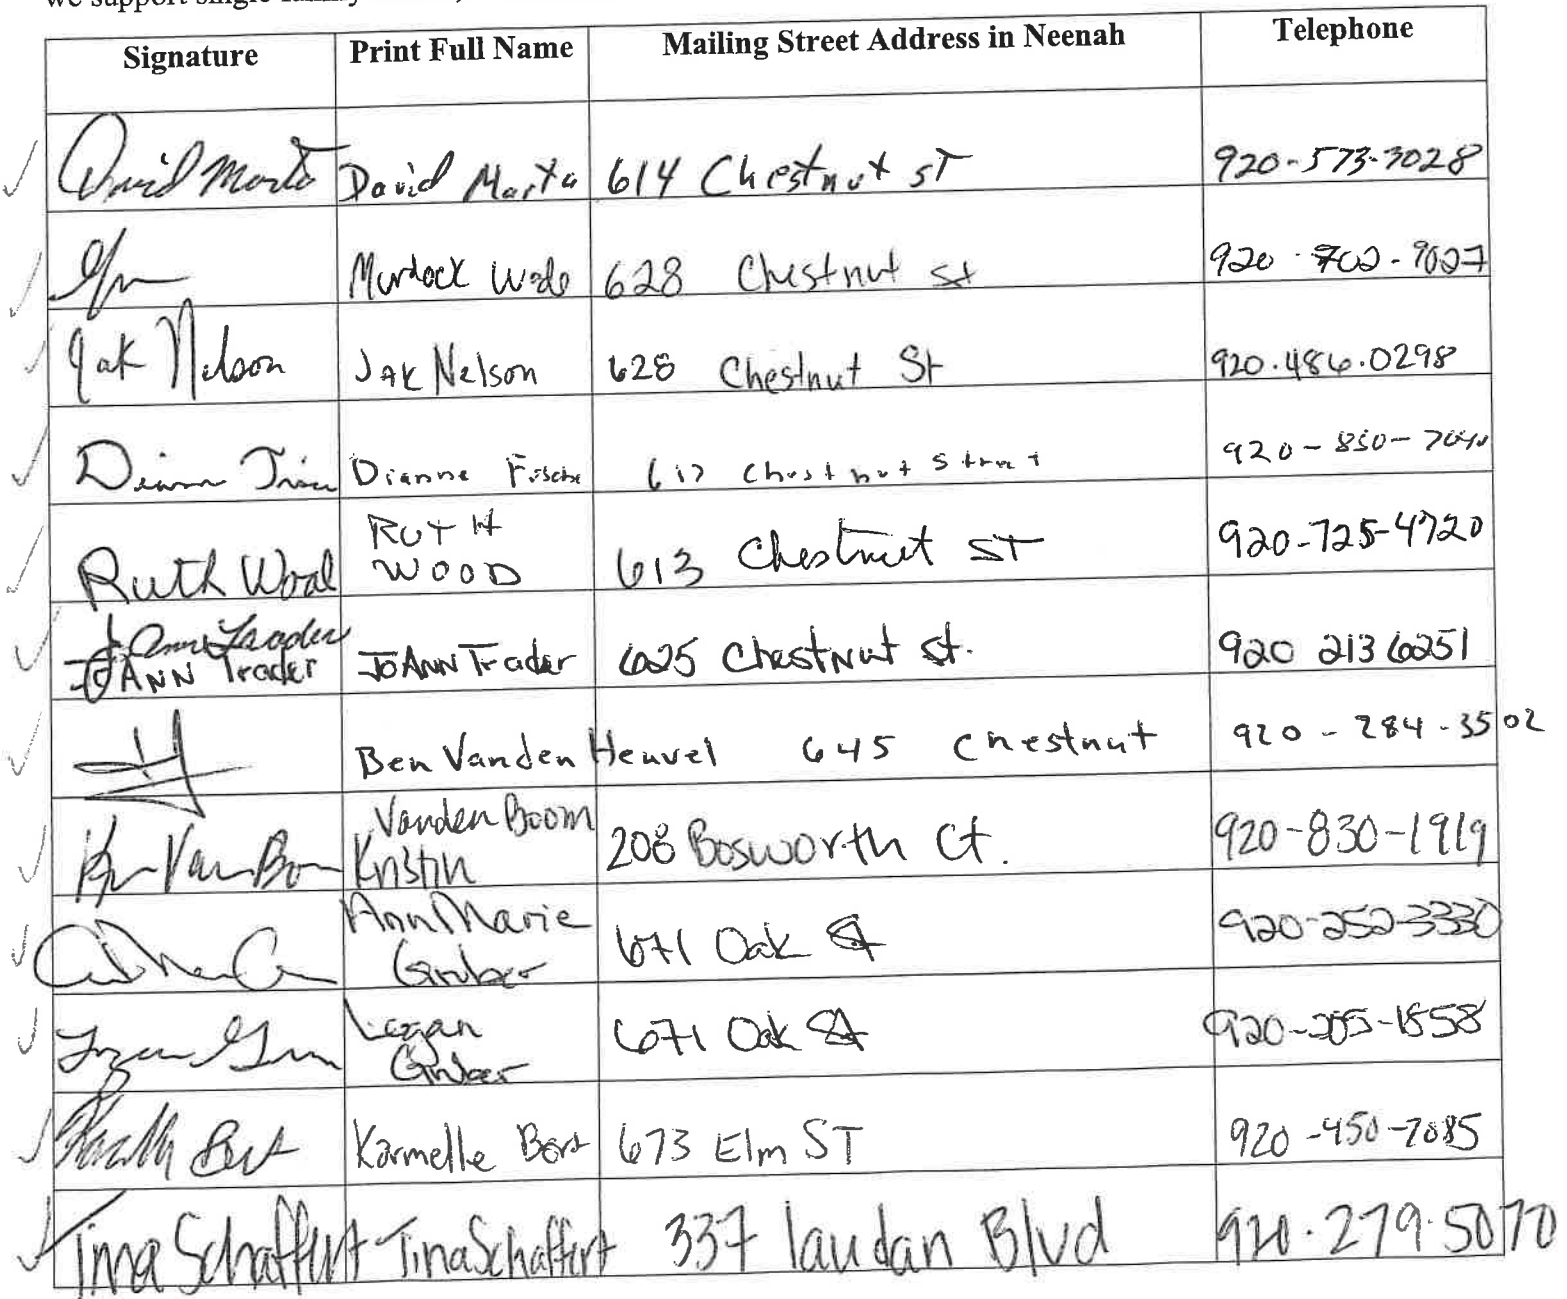 we support single family
Signature Print Full Name Mailing Street Address in Neenah Telephone
David Marta 614 Chestnut ST 920-573-3028
Murdock Wade 628 Chestnut St 920-702-9027
Jak Nelson JAK Nelson 628 Chestnut St 920.486.0298
Dianne 617 Chestnut Street 920-850-7040
Ruth Wood RUTH
WOOD 613 Chestnut ST 920-725-4720
Jo Ann Trader
JOANN Trader JOANN Trader 625 Chestnut St. 920 213 6251
Ben Vanden Heuvel 645 Chestnut 920-284-3502
Vanden Boom
Kristin 208 Bosworth Ct. 920-830-1919
AnnMarie
Gruber 671 Oak St 920-252-3330
Logan
Gruber 671 Oak St 920-205-1558
Karmelle Bort 673 Elm ST 920-450-7085
Tina Schaffert Tina Schaffert 337 laudan Blvd 920.279.5070